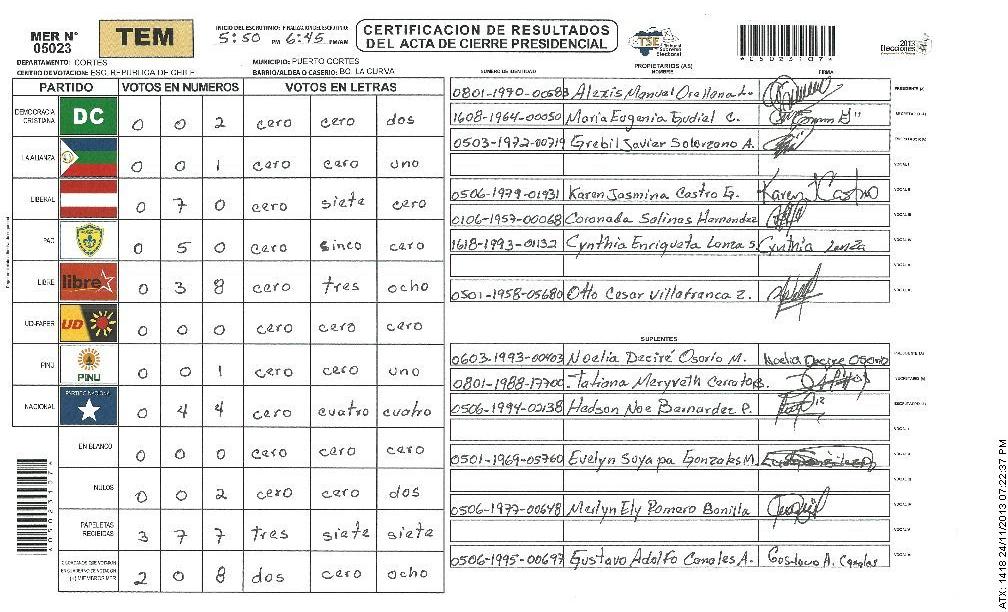 MER N° 05023
TEM
INICIO DEL ESCRUTINIO: FINALIZACION DEL ESCRUTINIO:
5:50 PM 6:45 PM/AM
CERTIFICACION DE RESULTADOS
DEL ACTA DE CIERRE PRESIDENCIAL
TSE Tribunal Supremo Electoral
*05023107*
2013
Elecciones
DEPARTAMENTO: CORTES
MUNICIPIO: PUERTO CORTES
CENTRO DE VOTACION: ESC. REPUBLICA DE CHILE
BARRIO/ALDEA O CASERIO: BO. LA CURVA
PARTIDO VOTOS EN NUMEROS VOTOS EN LETRAS
DEMOCRACIA CRISTIANA DC 0 0 2 cero cero dos
LA ALIANZA 0 0 1 cero cero uno
LIBERAL 0 7 0 cero siete cero
PAC 0 5 0 cero sinco cero
LIBRE libre 0 3 8 cero tres ocho
UD-FAPER UD 0 0 0 cero cero cero
PINU PINU 0 0 1 cero cero uno
NACIONAL PARTIDO NACIONAL 0 4 4 cero cuatro cuatro
EN BLANCO 0 0 0 cero cero cero
NULOS 0 0 2 cero cero dos
PAPELETAS RECIBIDAS 3 7 7 tres siete siete
2 0 8 dos cero ocho
NUMERO DE IDENTIDAD
PROPIETARIOS (AS)
NOMBRE
FIRMA
0801-1970-00583 Alexis Manuel Orellana L. PRESIDENTE (A)
1608-1964-00050 Maria Eugenia Gudiel C. SECRETARIO (A)
0503-1972-00719 Grebil Javier Solorzano A. ESCRUTADOR (A)
VOCAL I
0506-1979-01931 Karen Jasmina Castro G. Karen J Castro VOCAL II
0106-1957-00068 Coronada Salinas Hernandez VOCAL III
1618-1993-01132 Cynthia Enriqueta Lanza S. Cynthia Lanza VOCAL IV
VOCAL V
0501-1958-05680 Otto Cesar Villafranca Z.
SUPLENTES
0603-1993-00403 Noelia Deciré Osorio M. Noelia Decire Osorio PRESIDENTE (A)
0801-1988-17700 Tatiana Meryveth Cerrato B. SECRETARIO (A)
0506-1994-02138 Hedson Noe Bernardez P. ESCRUTADOR (A)
VOCAL I
0501-1969-05760 Evelyn Soyapa Gonzales M.
0506-1977-00648 Merlyn Ely Romero Bonilla
0506-1995-00697 Gustavo Adolfo Canales A. Gustavo A. Canales
*05023107*
ATX: 1418 24/11/2013 07:22:37 PM